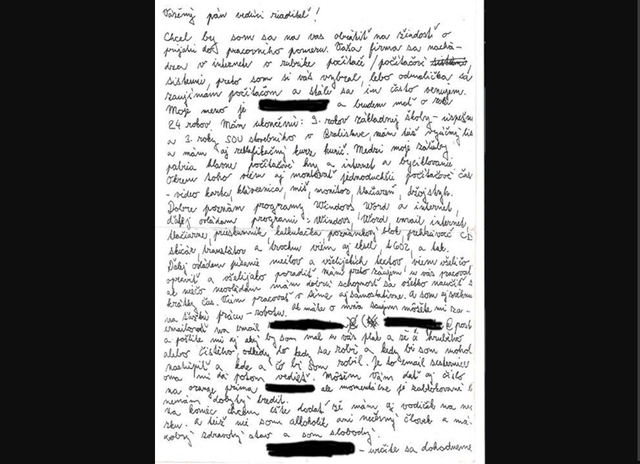 Vážený pán vedúci riaditeľ!
Chcel by som sa na vas obrátiť na žiadosť o
prijatí do pracovního pomeru. Vaša firma sa nachá-
dza v internetu v rubrike počítače/počítačoví
sistémi, preto som si vás vybral, lebo odmalička sa
zaujímam počítačom a stále sa im často venujem.
Moje meno je a budem mať o rok
24 rokov. Mám skončenie: 9. rokov základnej školy -
a 3. roky SOU stovebního v Bratislave, mám tiež
a mám aj kurz kurič. Medzi moje záľuby
patria hlavne počítačové hry a internet a bycitlovanie
Okrem toho viem aj montovať jednoduchšie počítačové čas
- video karta, klávesnica, miš, monitor, tlačiareň, džojstyk.
Dobre poznám programy Windovs Word a internet,
ďalej ovládam programi: Windovs, Word, email, internet,
tlačiarne, prieskumník, kalkulačka, poznámkový blok, prehrávač CD
skicár, translátor a trochu viem aj eksel, a tak.
Ďalej ovládam písanie mailov a všelijakých textov viem všeličo
opraviť a všelijako poradiť mám preto záujem u vás pracovať
ak niečo neovládam mám dobrú schopnosť sa všetko naučiť s
krátky čas. Viem pracovať v tíme aj samostatne. A som aj
na službu prácu - robotu. ak máte o mňa záujem môžete mi za-
emailovať na email @post
a pošlite mi aj aký by som mal u vás plat a že či hrubého
alebo čistého odkedy do kedy sa robí a kedy bi som mohol
nastúpiť a kde a čo bi som robil. Je to email sesternice
ona mi da potom vedieť. Môžem vám dať aj číslo
na orange príma ale momentálne je zablokovaná
nemám dobytý kredit.
na konec chcem ešte dodať že mám aj vodičák na
a tiež nie som alkoholik ani nečestný človek a má
dobrý zdravotný stav a som slobodý.
- určite sa dohodneme